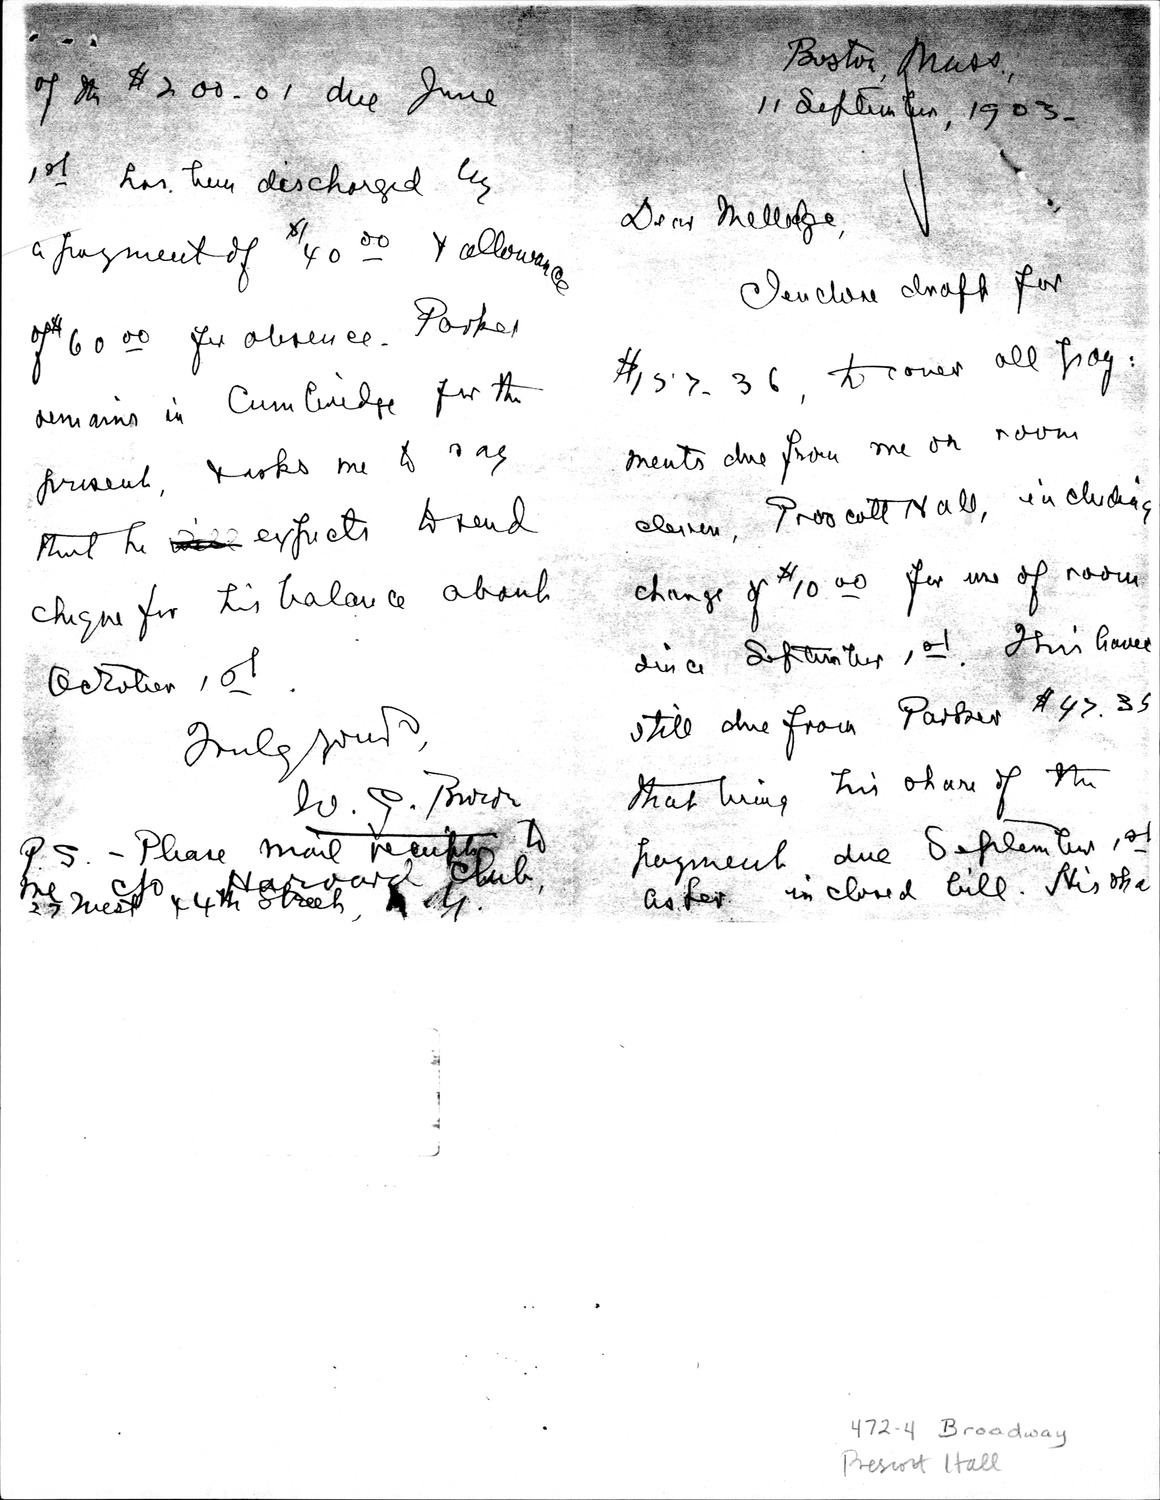 Boston, Mass.,
11 September, 1903-
Dear Melledge,
I enclose draft for
$157.36, to cover all pay:
ments due from me on room
eleven, Prescott Hall, including
charge of $10 00 for use of room
since September 1st. This leaves
still due from Parker $47.35
that being his share of the
payment due September 1st
as per inclosed bill. His sha
of the $200.01 due June
1st has been discharged by
a payment of $40 00 & allowance
of $60 00 for absence. Parker
remains in Cambridge for the
present, & asks me to say
that he expects to send
cheque for his balance about
October 1st.
Truly yours,
W. G. Brown
P.S. - Please mail receipts to
me c/o Harvard Club,
27 West 44th Street,
472-4 Broadway
Prescott Hall